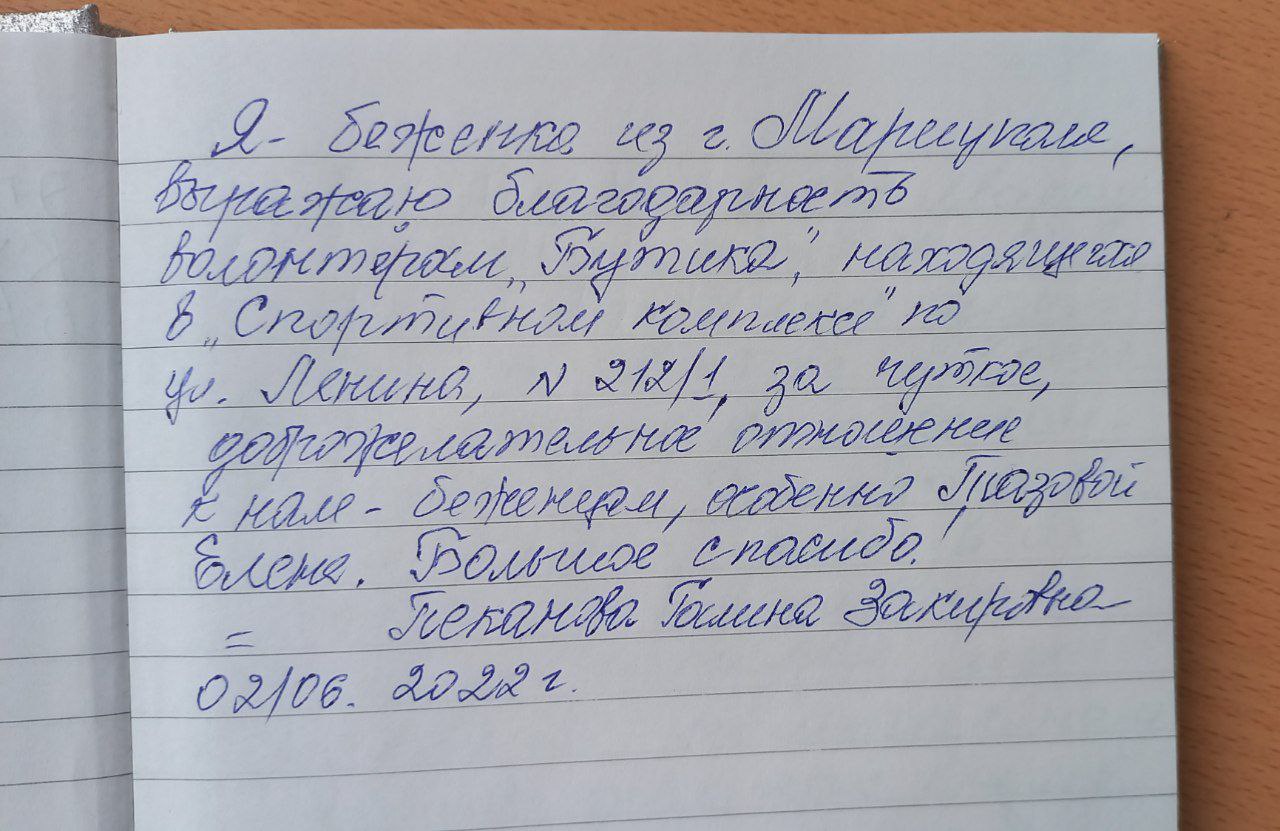 Я - беженка из г. Мариуполя,
выражаю благодарность
волонтёрам „Бутика", находящегося
в „Спортивном комплексе" по
ул. Ленина, N 212/1, за чуткое,
доброжелательное отношение
к нам - беженцам, особенно
Елене. Большое спасибо!
= Пеканова Галина Закировна
02/06. 2022 г.